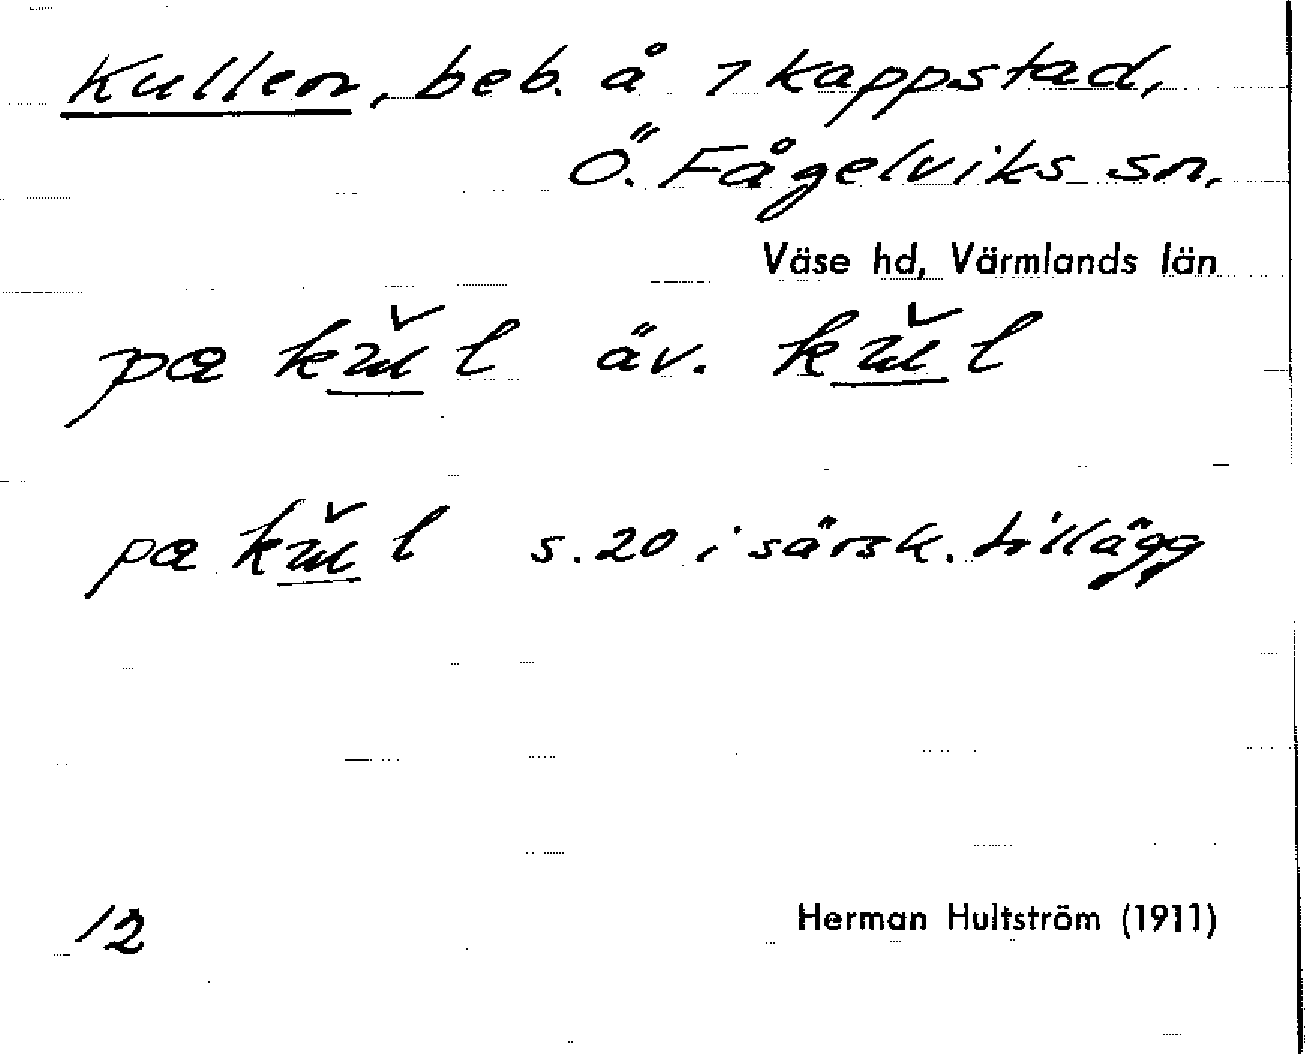 Kullen, beb. å 1 kappstad,
Ö. Fågelviks sn,
Väse hd, Värmlands län
pa äv.
pa s. 20 i särsk. tillägg
12
Herman Hultström (1911)